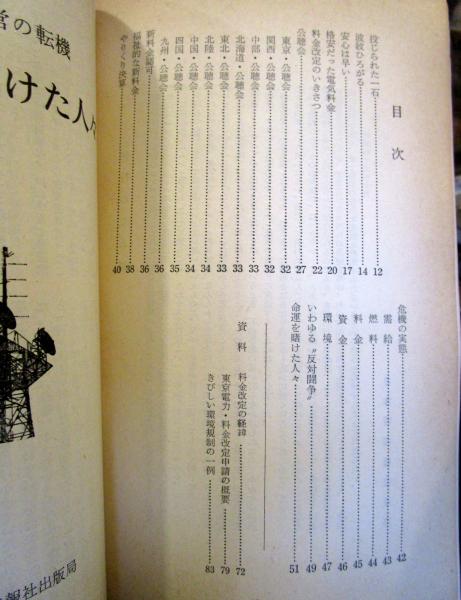 目次
投じられた一石 12
波紋ひろがる 14
安心は早い 17
格安だった電気料金 20
料金改定のいきさつ 22
公聴会 27
東京・公聴会 32
関西・公聴会 32
中部・公聴会 33
北海道・公聴会 33
東北・公聴会 33
北陸・公聴会 34
中国・公聴会 34
四国・公聴会 35
九州・公聴会 36
新料金認可 36
福祉的な新料金 38
やりくり決算 40
危機の実態 42
需給 43
燃料 44
料金 45
資金 46
環境 47
いわゆる〝反対闘争〟 49
命運を賭けた人々 51
資料 料金改定の経緯 72
東京電力・料金改定申請の概要 79
きびしい環境規制の一例 83
営の転機
けた人々
報社出版局